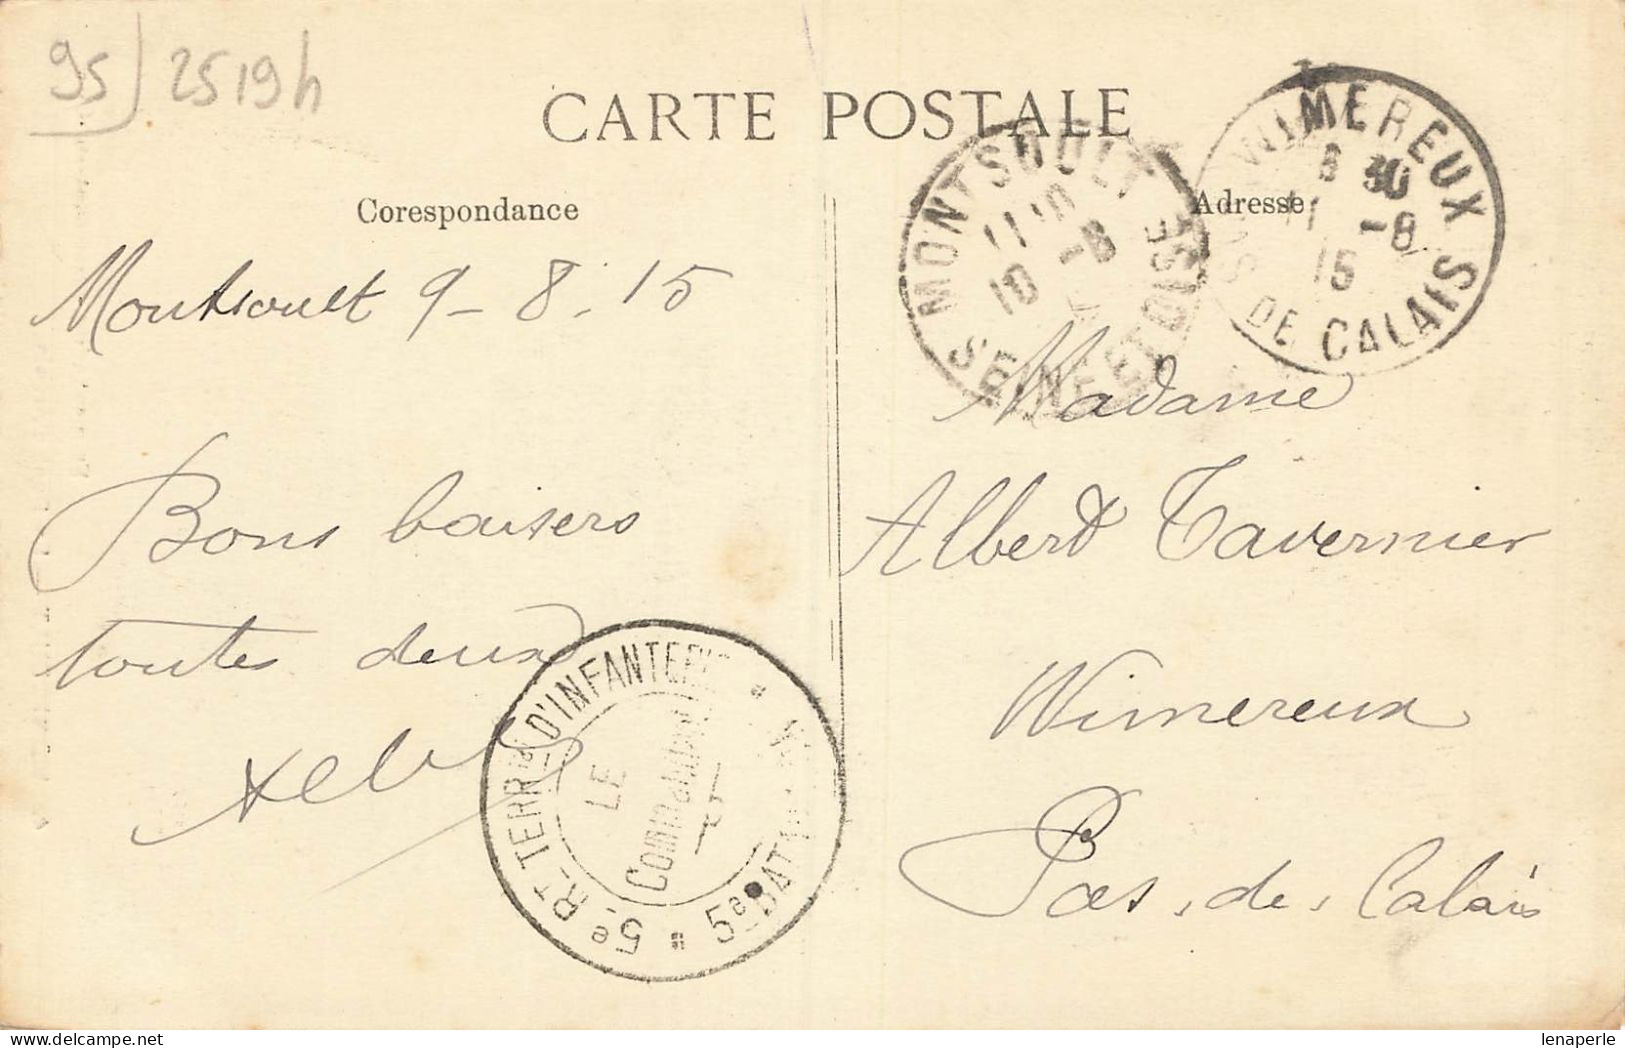 95) 2519h
CARTE POSTALE
Corespondance
Adresse
MONTSOULT
11 10
10 -8
SEINE ET OISE
WIMEREUX
8 30
11 -8
15
PAS DE CALAIS
Montsoult 9-8.15
Bons baisers
toutes deux
Madame
Albert Tavernier
Wimereux
Pas-de-Calais
5e RT TERRal D'INFANTERIE * 5e BATAILLON *
LE
Commandant
lenaperle